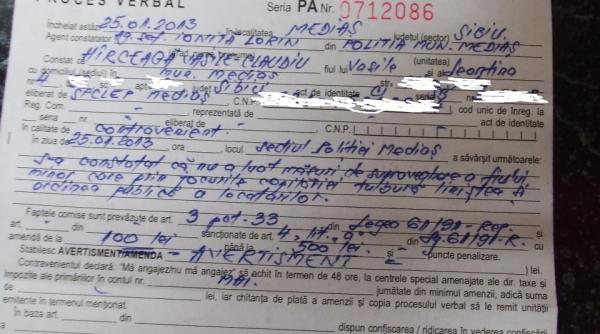 PROCES VERBAL Seria PA Nr. 0712086
Încheiat astăzi 25.01.2013 în localitatea MEDIAȘ județul (sector) SIBIU
Agent constatator IONIȚĂ LORIN din POLIȚIA MUN. MEDIAȘ
(unitatea)
Constat că MÎRCEAGA VASILE-CLAUDIU fiul lui Vasile și al Leontina
cu domiciliul (sediul) în mun. mediaș str.
nr. 4 sc. ap. județ SIBIU act de identitate CI seria nr.
eliberat de SPCLEP mediaș C.N.P. cod unic de înreg. la
Reg. Com. - reprezentată de - act de identitate
seria - nr. - eliberat de - C.N.P.
În calitate de contravenient.
În ziua de 25.01.2013 ora , locul sediul Poliției Mediaș a săvârșit următoarele:
S-a constatat că nu a luat măsuri de supraveghere a fiului
minor care prin jocurile copilăriei tulbură liniștea și
ordinea publică a locatarilor.
Faptele comise sunt prevăzute de art. 3 pct. 33 din Legea 61/91-Rep. și
sancționate de art. 4, lit. din Lg. 61/91-R. cu
amendă de la 100 lei până la 500 lei. și - puncte penalizare.
Stabilesc AVERTISMENT/AMENDA - AVERTISMENT ) lei.
Contravenientul declară: "Mă angajez/nu mă angajez" să achit în termen de 48 ore, la centrele special amenajate ale dir. taxe și
impozite ale primăriilor în contul nr. jumătate din minimul amenzii, adică suma
de , lei, iar chitanța de plată a amenzii și copia procesului verbal să le remit unității
emitente în termenul menționat.
În baza art. din dispun confiscarea / ridicarea în vederea confiscării